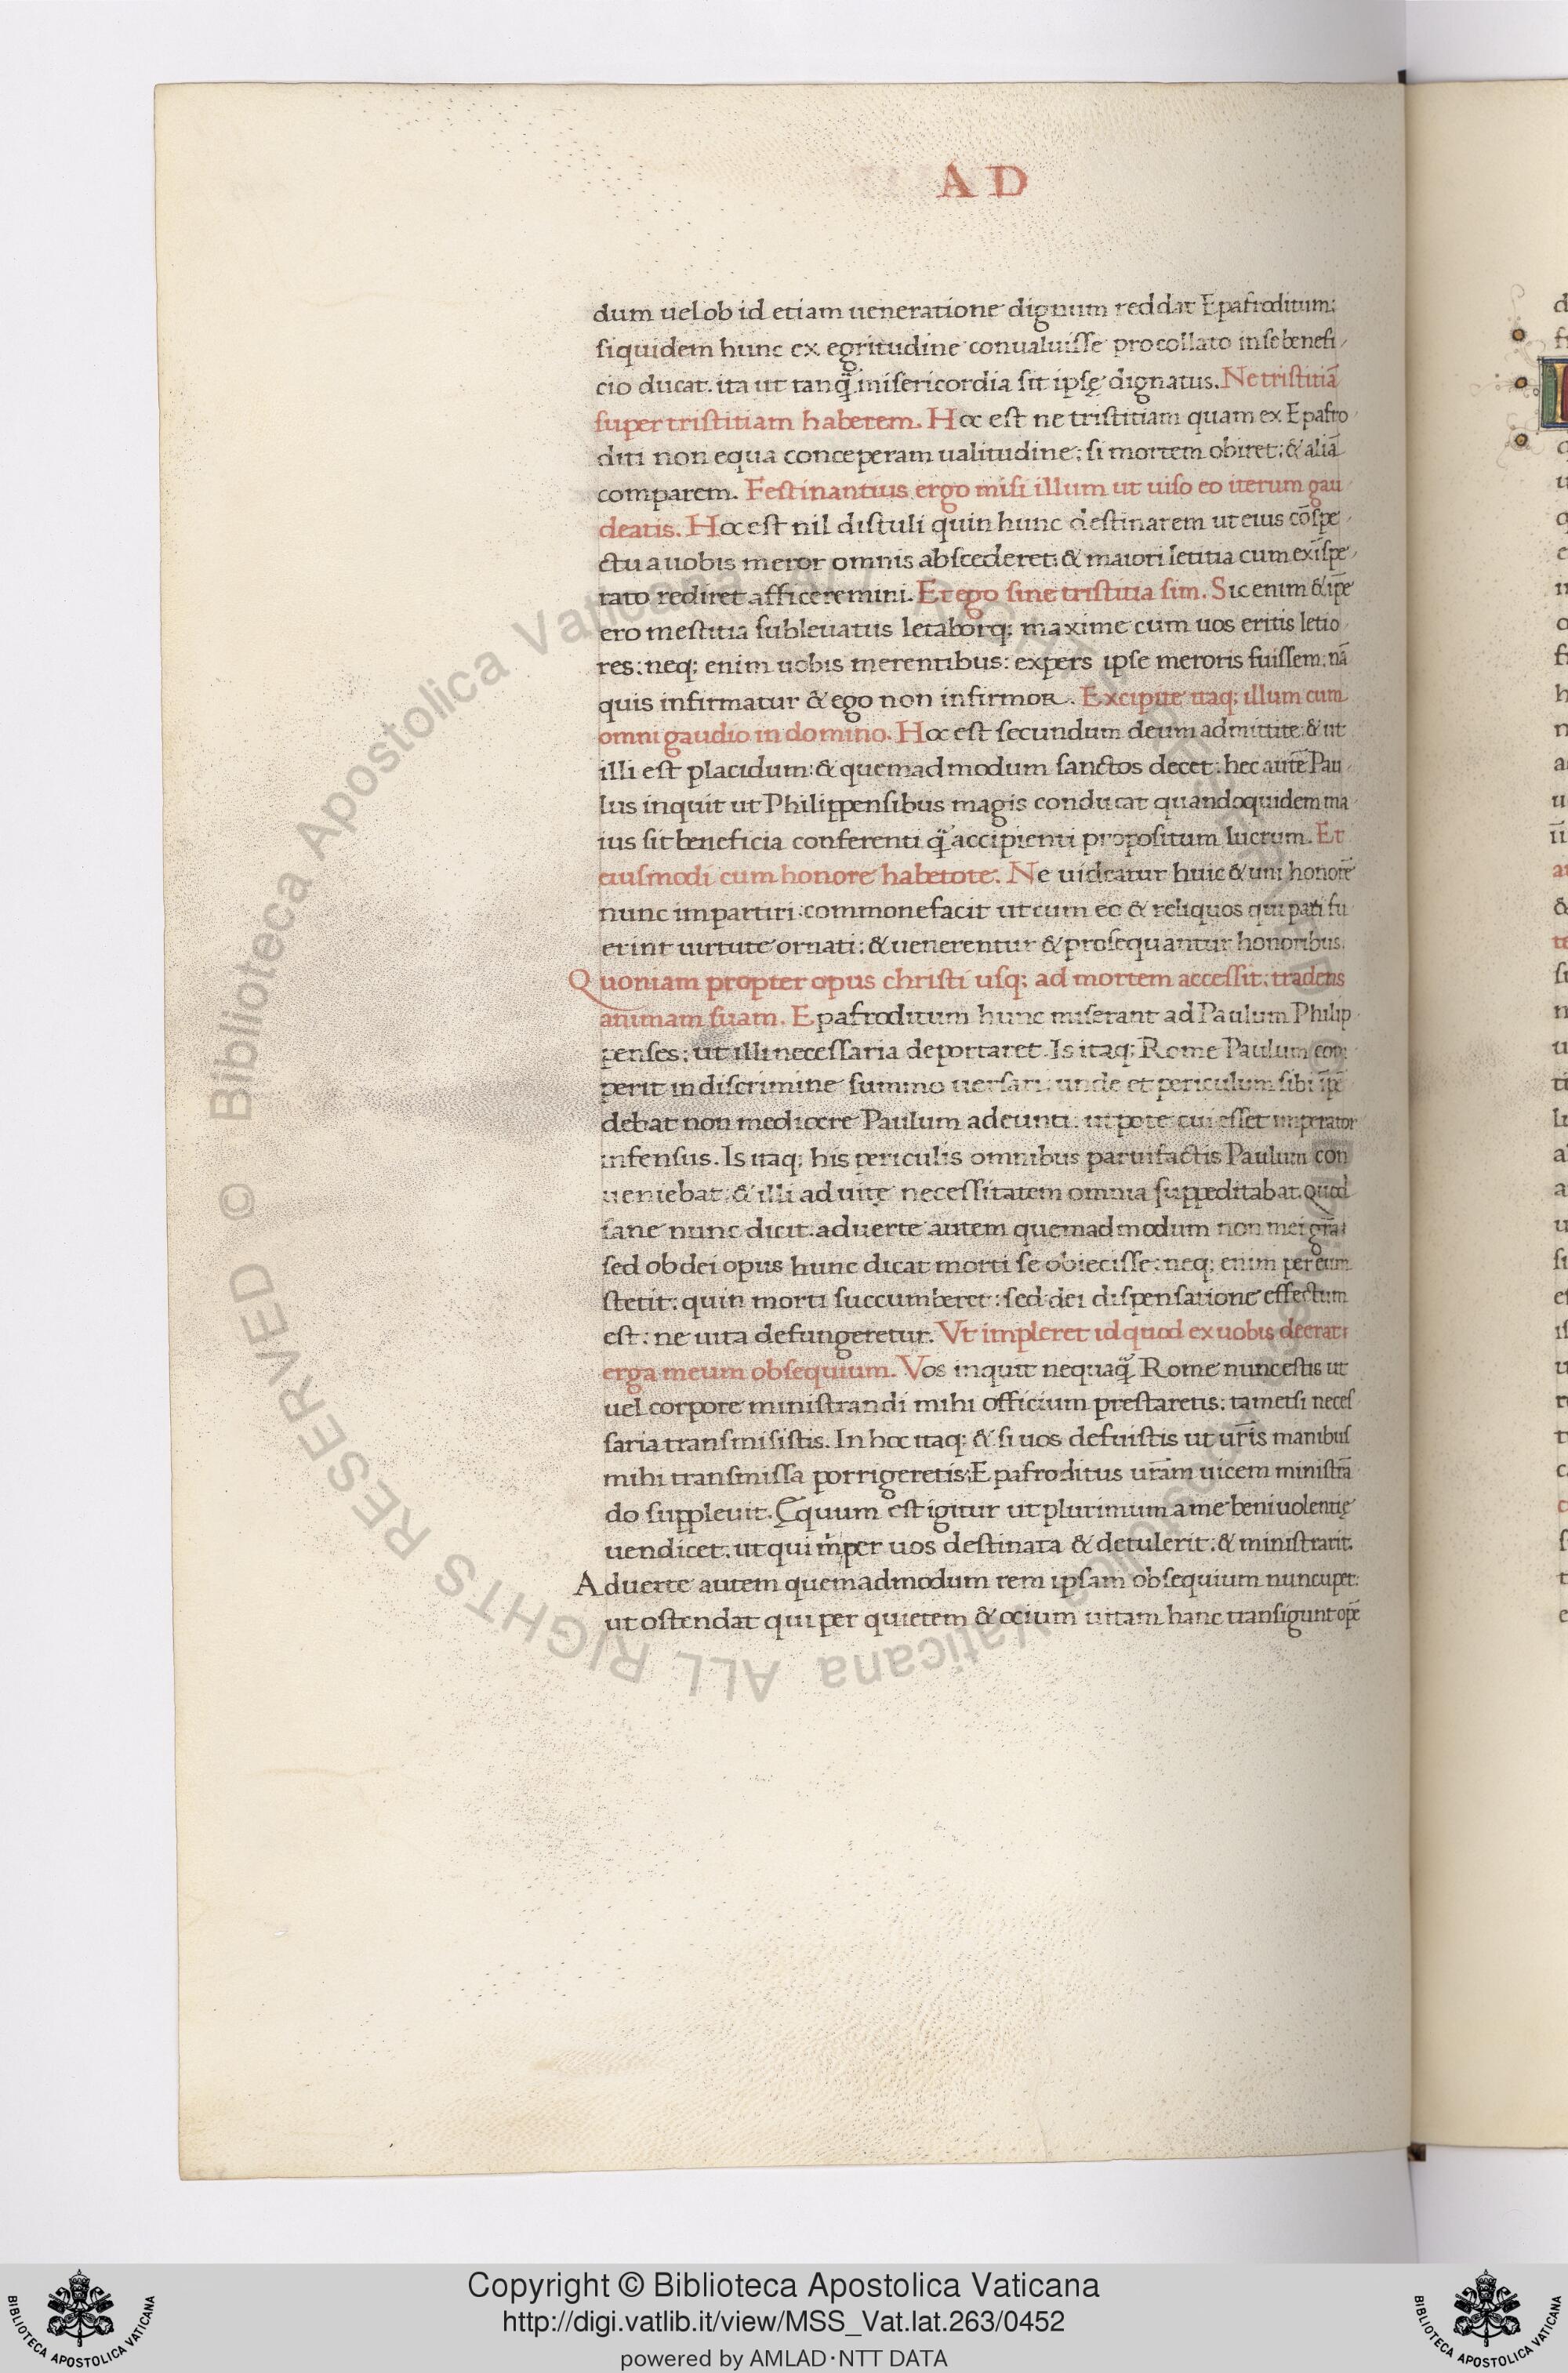 AD
dum uel ob id etiam ueneratione dignum reddat Epafroditum;
siquidem hunc ex egritudine conualuisse pro collato in se benefi
cio ducat. ita ut tanq̃ misericordia sit ipsę dignatus. Ne tristitiã
super tristitiam haberem. Hoc est ne tristitiam quam ex Epafro
diti non equa conceperam ualitudine: si mortem obiret: & aliã
comparem. Festinantius ergo misi illum ut uiso eo iterum gau
deatis. Hoc est nil distuli quin hunc destinarem ut eius cõspe
ctu a uobis meror omnis abscederet: & maiori letitia cum exĩspe
rato rediret afficeremini. Et ego sine tristitia sim. Sic enim & ip̃e
ero mestitia subleuatus letaborq; maxime cum uos eritis letio
res: neq; enim uobis merentibus: expers ipse meroris fuissem: nã
quis infirmatur & ego non infirmor. Excipite itaq; illum cum
omni gaudio in domino. Hoc est secundum deum admittite: & ut
illi est placidum: & quemadmodum sanctos decet: hec autẽ Pau
lus inquit ut Philippensibus magis conducat quandoquidem ma
ius sit beneficia conferenti q̃ accipienti propositum lucrum. Et
eiusmodi cum honore habetote. Ne uideatur huic & uni honorẽ
nunc impartiri: commonefacit ut cum eo & reliquos qui pari fu
erint uirtute ornati: & uenerentur & prosequantur honoribus.
Quoniam propter opus christi usq; ad mortem accessit: tradens
animam suam. Epafroditum hunc miserant ad Paulum Philip
penses: ut illi necessaria deportaret. Is itaq; Rome Paulum com
perit in discrimine summo uersari: unde et periculum sibi ip̃e
debat non mediocre Paulum adeunti: ut pote cui esset imperator
infensus. Is itaq; his periculis omnibus paruifactis Paulum con
ueniebat: & illi ad uitę necessitatem omnia suppeditabat. Quod
sane nunc dicit. aduerte autem quemadmodum non mei gr̃a
sed ob dei opus hunc dicat morti se obiecisse: neq; enim per eum
stetit: quin morti succumberet: sed dei dispensatione effectum
est: ne uita defungeretur. Vt impleret id quod ex uobis deerat
erga meum obsequium. Vos inquit nequaq̃ Rome nunc estis ut
uel corpore ministrandi mihi officium prestaretis: tametsi neces
saria transmisistis. In hoc itaq; & si uos defuistis ut ur̃is manibus
mihi transmissa porrigeretis: Epafroditus ur̃am uicem ministrã
do suppleuit. Ęquum est igitur ut plurimum a me beniuolentię
uendicet. ut qui per uos destinata & detulerit: & ministrarit.
Aduerte autem quemadmodum rem ipsam obsequium nuncupet:
ut ostendat qui per quietem & ocium uitam hanc transigunt opẽ
Copyright © Biblioteca Apostolica Vaticana
http://digi.vatlib.it/view/MSS_Vat.lat.263/0452
powered by AMLAD·NTT DATA
BIBLIOTECA APOSTOLICA VATICANA
BIBLIOTECA APOSTOLICA VATICANA
© Biblioteca Apostolica Vaticana ALL RIGHTS RESERVED